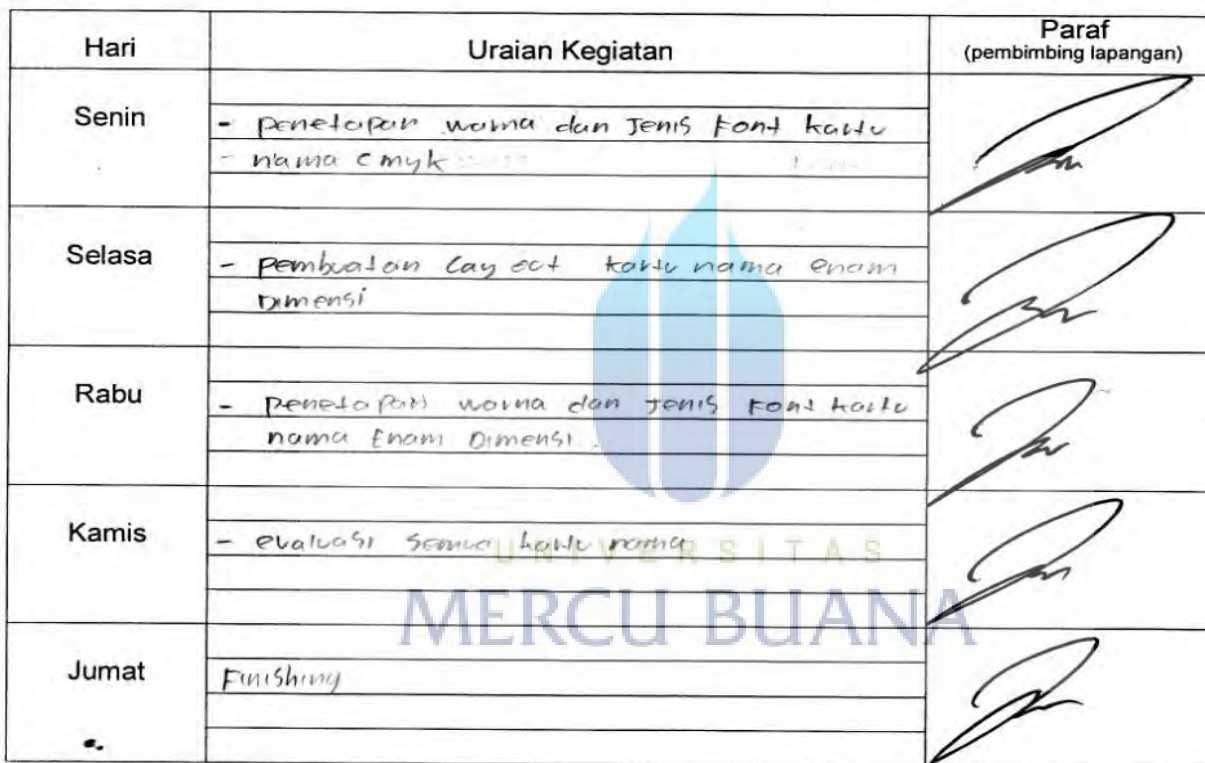 Hari Uraian Kegiatan Paraf
(pembimbing lapangan)
Senin
- penetapan warna dan Jenis Font kartu
- nama cmyk
Selasa
- pembuatan Layout kartu nama enam
Dimensi
Rabu
- penetapan warna dan Jenis Font kartu
nama Enam Dimensi
Kamis
- evaluasi semua kartu nama
UNIVERSITAS
MERCU BUANA
Jumat
Finishing